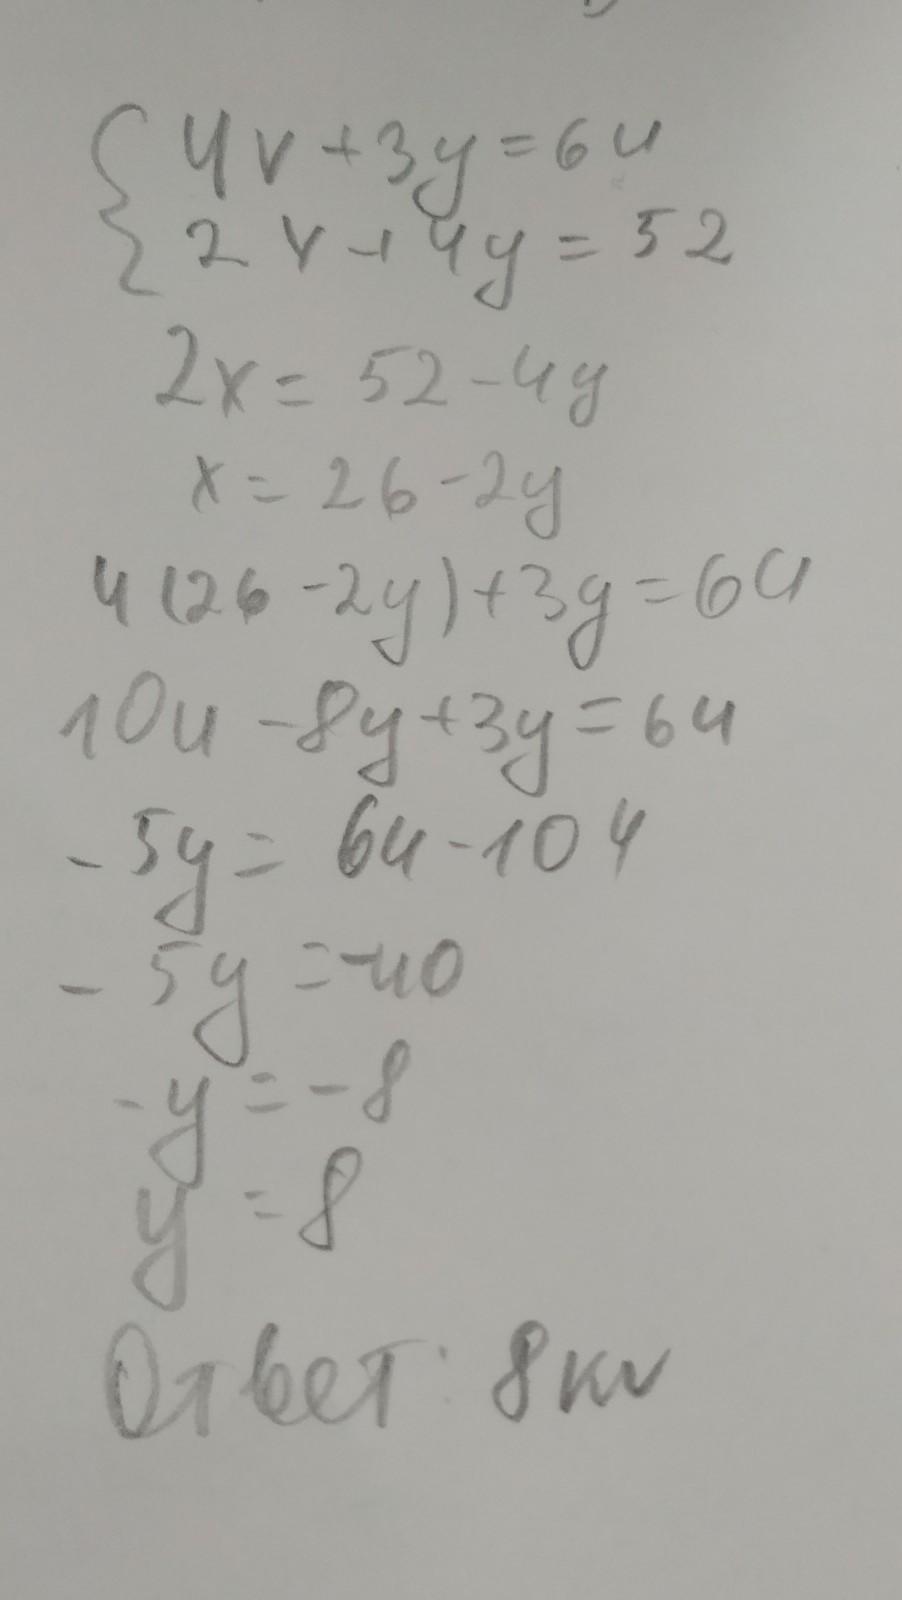 4x+3y=64
2x+4y=52
2x=52-4y
x=26-2y
4(26-2y)+3y=64
104-8y+3y=64
-5y=64-104
-5y=-40
-y=-8
y=8
Ответ: 8 кг